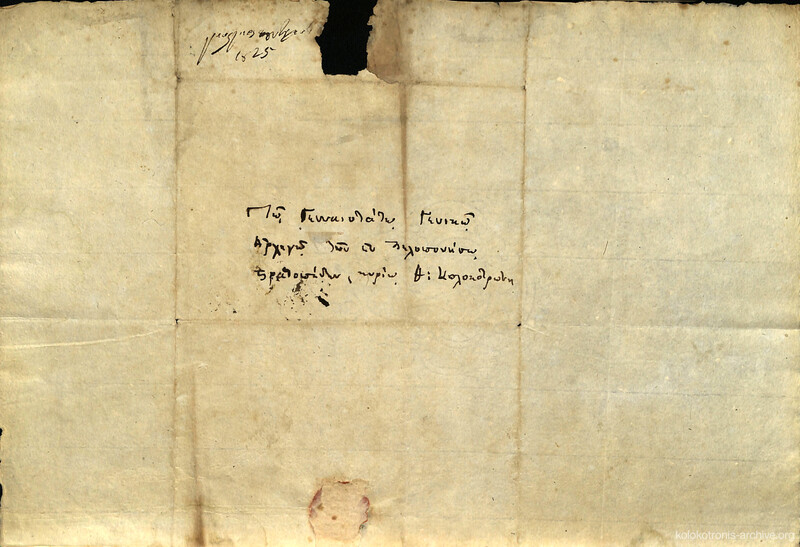 1825
Τῷ Γενναιοτάτῳ Γενικῷ
Ἀρχηγῷ τῶν ἐν Πελοποννήσῳ
Στρατοπέδων, κυρίῳ Θ: Κολοκοτρώνῃ
kolokotronis-archive.org